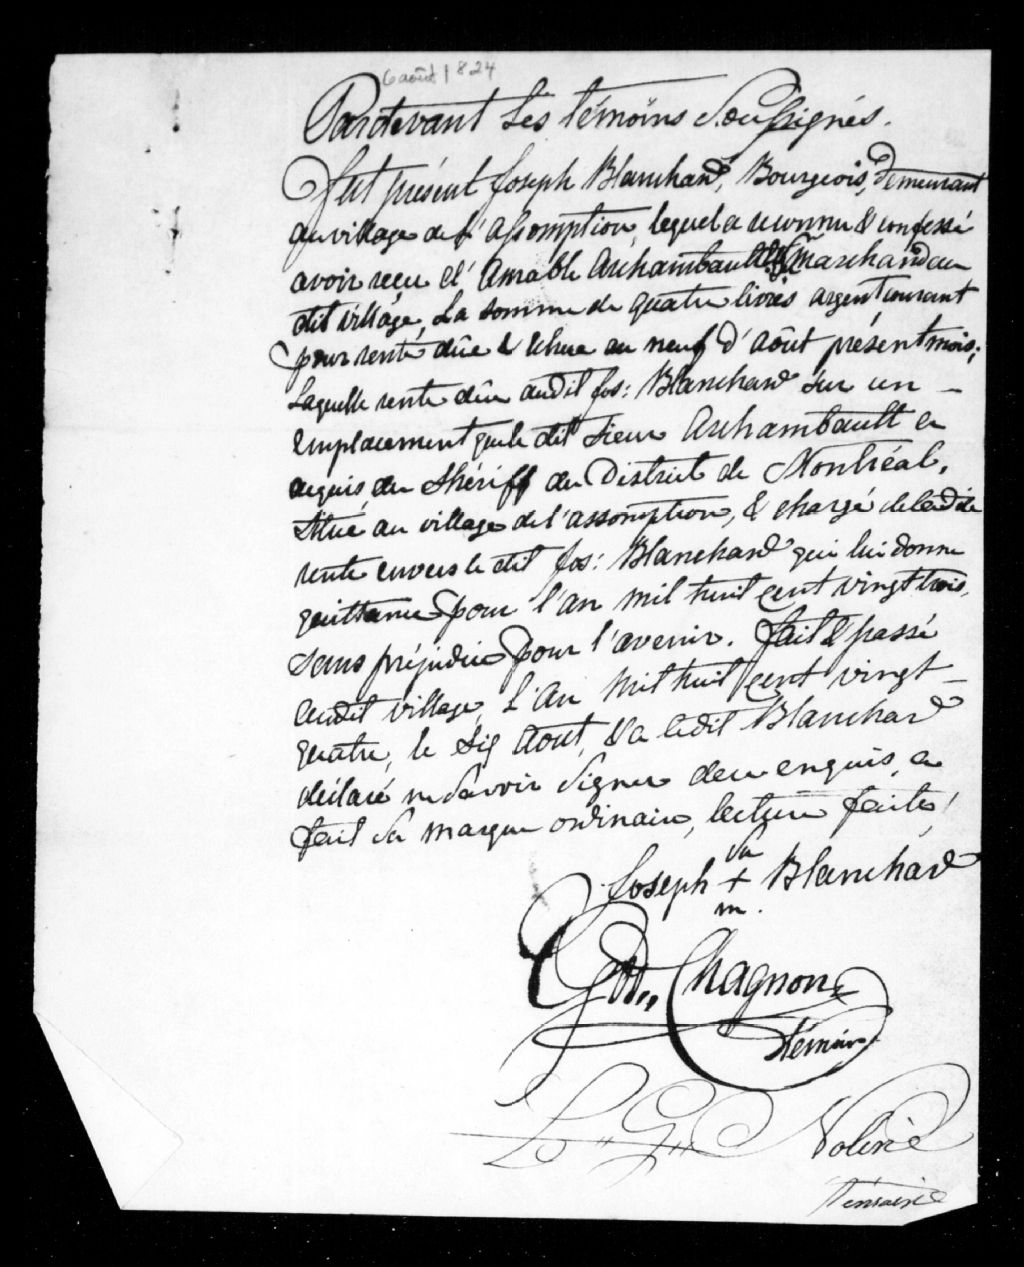 6 août 1824
Pardevant Les témoins Soussignés.
Fut présent Joseph Blanchard, Bourgeois, demeurant
au village de L'Assomption, lequel a reconnu & confessé
avoir reçu d'Amable Archambault Marchand au
dit village, La somme de quatre livres argent courant
pour rente dûe & échue au neuf d'août présent mois;
Laquelle rente dûe audit Jos: Blanchard sur un
emplacement que le dit Sieur Archambault a
acquis du Shériff du District de Montréal,
Situé au village de l'assomption, & chargé de ladite
rente envers le dit Jos: Blanchard qui lui donne
quittance pour l'an mil huit cent vingt trois,
sans préjudice pour l'avenir. fait & passé
audit village, L'an mil huit cent vingt
quatre, le six Aout, & a ledit Blanchard
déclaré ne Savoir Signer de ce enquis, a
fait Sa marque ordinaire, lecture faite,
Sa
Joseph + Blanchard
m.
Chagnon
témoin
L" G" Nolin
témoin